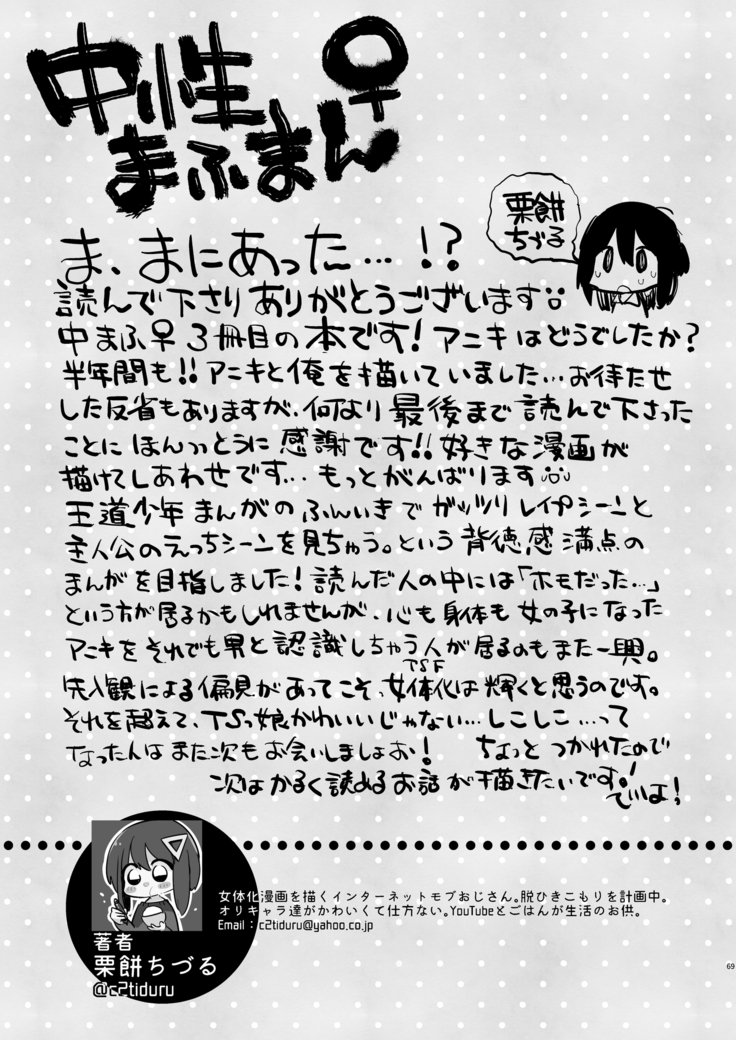 中性
まふまん♀
栗餅
ちづる
ま、まにあった…!?
読んで下さりありがとうございます
中まふ♀3冊目の本です!アニキはどうでしたか?
半年間も!!アニキと俺を描いていました…お待たせ
した反省もありますが、何より最後まで読んで下さった
ことにほんっっとうに感謝です!!好きな漫画が
描けてしあわせです…もっとがんばります
王道少年まんがのふんいきでガッツリレイプシーンと
主人公のえっちシーンを見ちゃう。という背徳感満点の
まんがを目指しました!読んだ人の中には「ホモだった…」
という方が居るかもしれませんが、心も身体も女の子になった
アニキをそれでも男と認識しちゃう人が居るのもまた一興。
TSF
先入観による偏見があってこそ、女体化は輝くと思うのです。
それを超えて、TSっ娘かわいいじゃない…しこしこ…って
なった人はまた次もお会いしましょお! ちょっとつかれたので
次はかるく読めるお話が描きたいです!
でいよ!
女体化漫画を描くインターネットモブおじさん。脱ひきこもりを計画中。
オリキャラ達がかわいくて仕方ない。YouTubeとごはんが生活のお供。
Email:c2tiduru@yahoo.co.jp
著者
栗餅ちづる
@c2tiduru
69